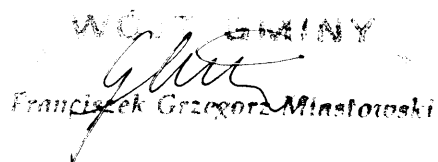 WÓJT GMINY
Franciszek Grzegorz Miastowski